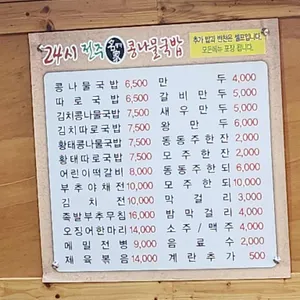 24시 전주 콩나물국밥
추가 밥과 반찬은 셀프입니다.
모든메뉴 포장 됩니다.
콩나물국밥 6,500
따로국밥 6,500
김치콩나물국밥 7,500
김치따로국밥 7,500
황태콩나물국밥 7,500
황태따로국밥 7,500
어린이떡갈비 8,000
부추야채전 10,000
김치전 10,000
족발부추무침 16,000
오징어한마리 14,000
메밀전병 9,000
제육볶음 14,000
만두 4,000
갈비만두 5,000
새우만두 5,000
왕만두 6,000
동동주한잔 2,000
모주한잔 2,000
동동주한되 6,000
모주한되 10,000
막걸리 3,000
밤막걸리 4,000
소주/맥주 4,000
음료수 2,000
계란추가 500